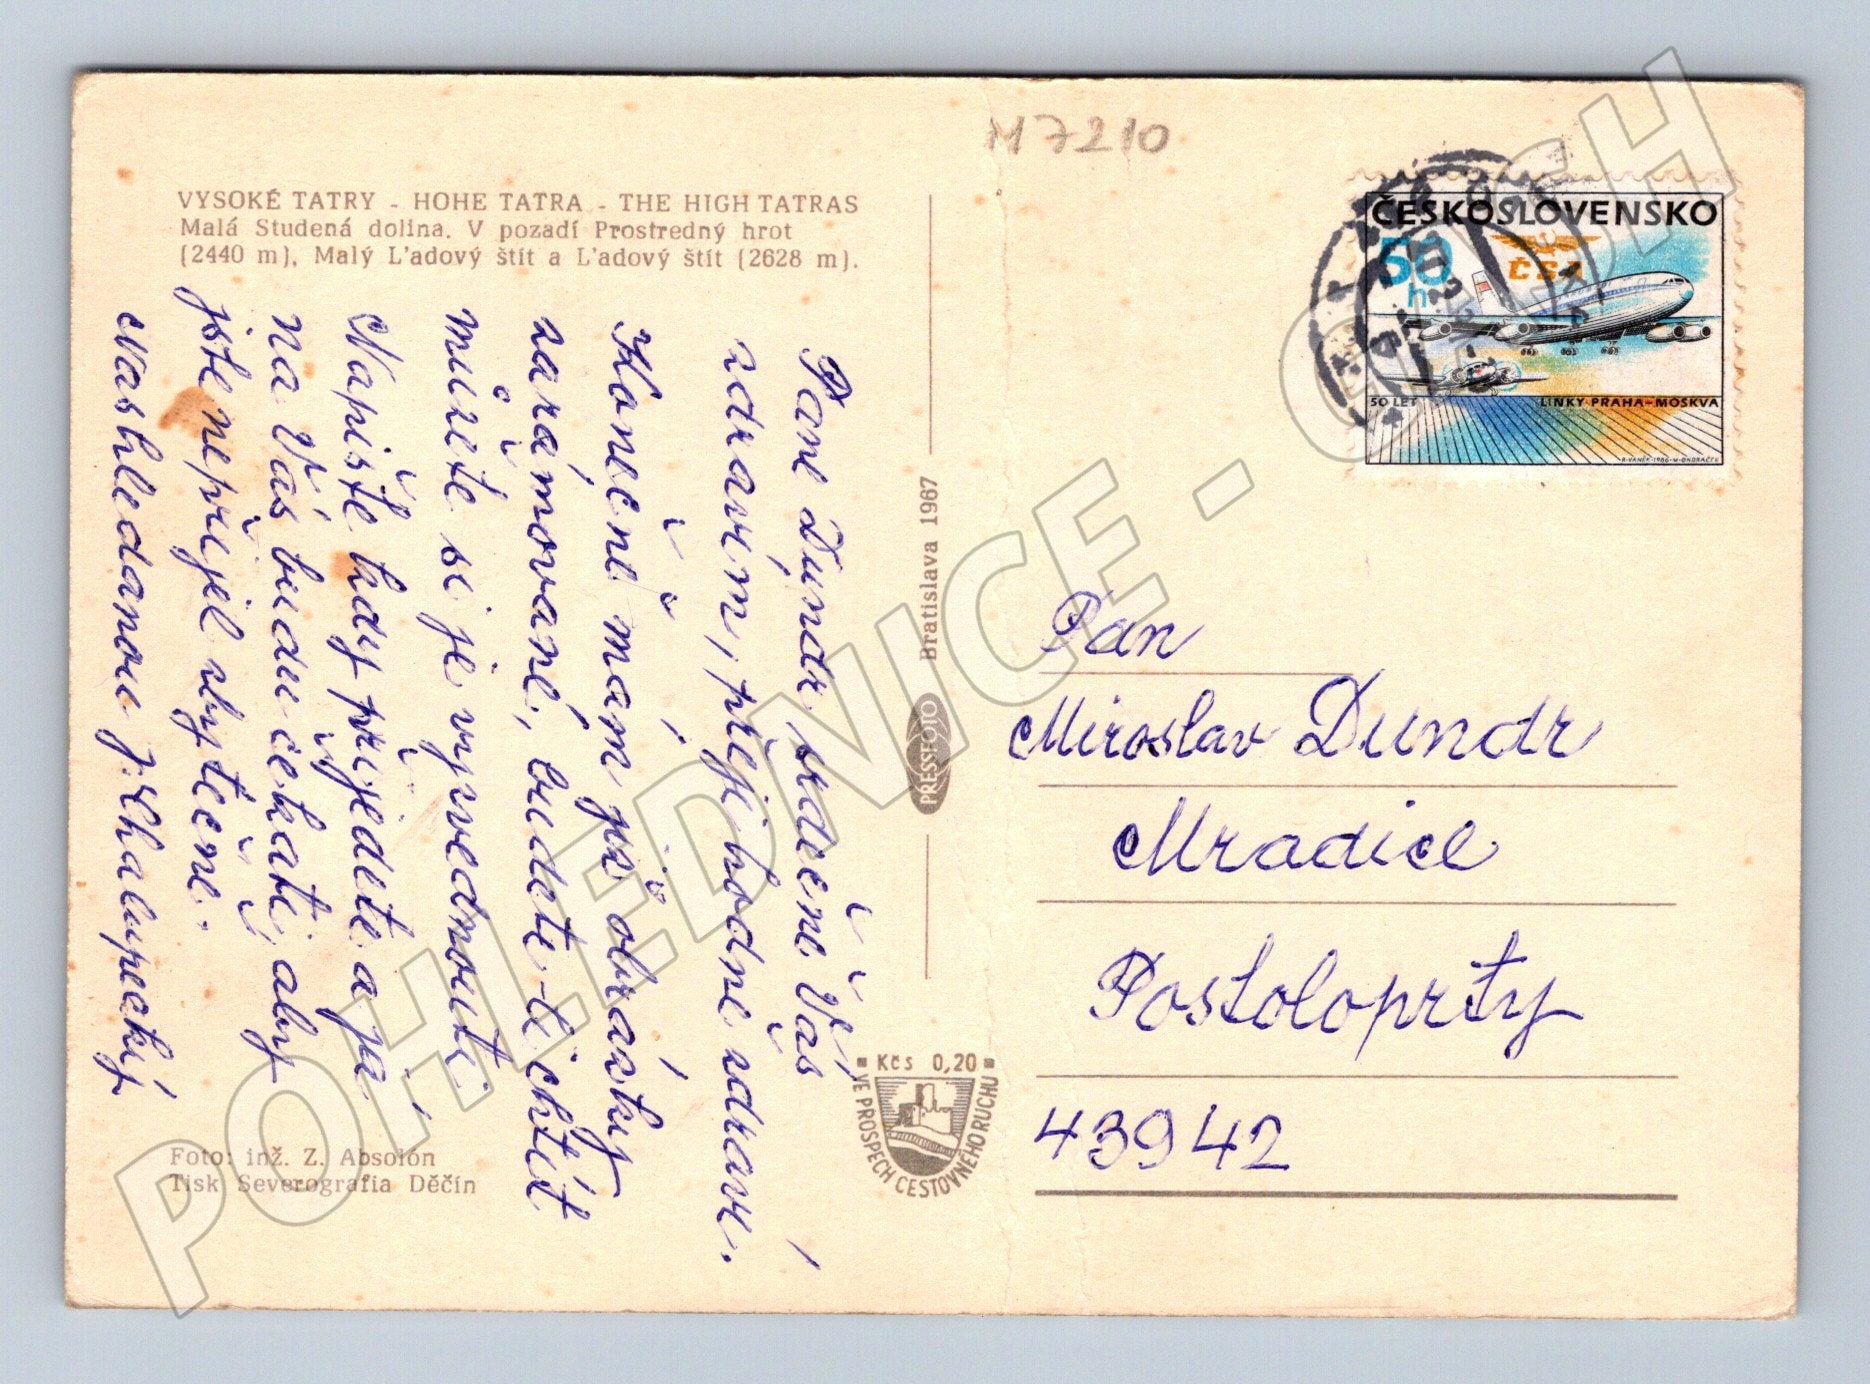 M7210
VYSOKÉ TATRY - HOHE TATRA - THE HIGH TATRAS
Malá Studená dolina. V pozadí Prostredný hrot
(2440 m), Malý L'adový štít a L'adový štít (2628 m).
ČESKOSLOVENSKO
50
h
ČSA
50 LET LINKY PRAHA-MOSKVA
R.VANĚK-1986-M.ONDRÁČEK
Pane Dundr, srdečně Vás
zdravím, přeji hodně zdraví.
Konečně mám již obrázky
zarámované, budete-li chtít
můžete si je vyzvednouti.
Napište kdy přijedete a já
na Vás budu čekati, aby
jste nepřijel zbytečně.
Nashledanou J. Chalupecký
PRESSFOTO Bratislava 1967
Pan
Miroslav Dundr
Mradice
Postoloprty
43942
Kčs 0,20
VE PROSPECH CESTOVNÉHO RUCHU
Foto: inž. Z. Absolón
Tisk Severografia Děčín
POHLEDNICE - CASH